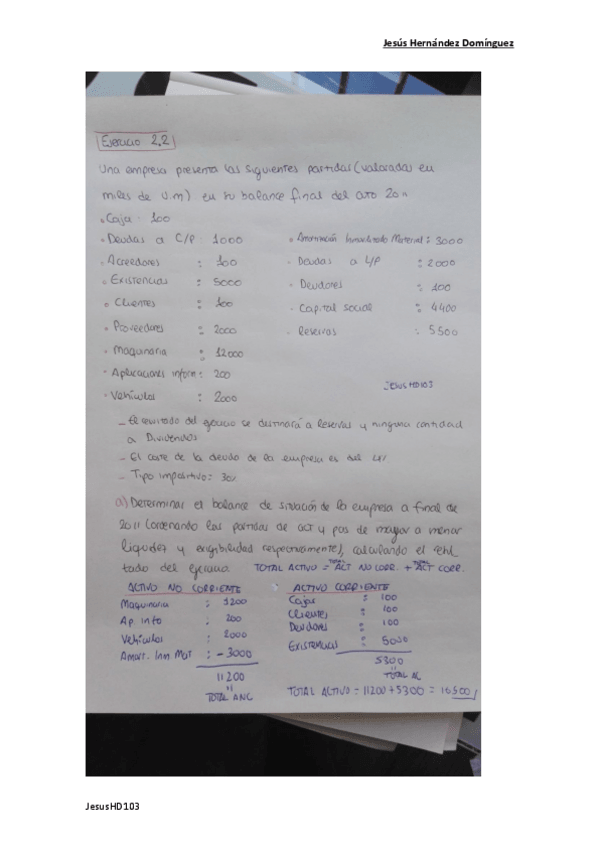 Jesús Hernández Domínguez
Ejercicio 2.2
Una empresa presenta las siguientes partidas (valoradas en
miles de u.m) en su balance final del año 2011
• Caja : 100
• Deudas a C/P : 1000
• Amortización Inmovilizado Material : 3000
• Acreedores : 100
- Deudas a L/P : 2000
• Existencias : 5000
- Deudores : 100
• Clientes : 100
- Capital social : 4400
• Proveedores : 2000
- Reservas : 5500
• Maquinaria : 12000
• Aplicaciones inform : 200
JESUSHD103
• Vehículos : 2000
- El resultado del ejercicio se destinará a Reservas y ninguna cantidad
a Dividendos
- El coste de la deuda de la empresa es del
- Tipo impositivo = 30%
a) Determinar el balance de situación de la empresa a final de
2011 (ordenando las partidas de act y pas de mayor a menor
liquidez y exigibilidad respectivamente), calculando el resul
tado del ejercicio. TOTAL ACTIVO = TOTAL ACT NO CORR. + TOTAL ACT CORR.
ACTIVO NO CORRIENTE
Maquinaria : 1200
Ap. info : 200
Vehículos : 2000
Amort. Inm Mat : - 3000
11200
"
TOTAL ANC
ACTIVO CORRIENTE
Cajas : 100
Clientes : 100
Deudores : 100
Existencias : 5000
5300
"
TOTAL AC
TOTAL ACTIVO = 11200 + 5300 = 16500
JesusHD103